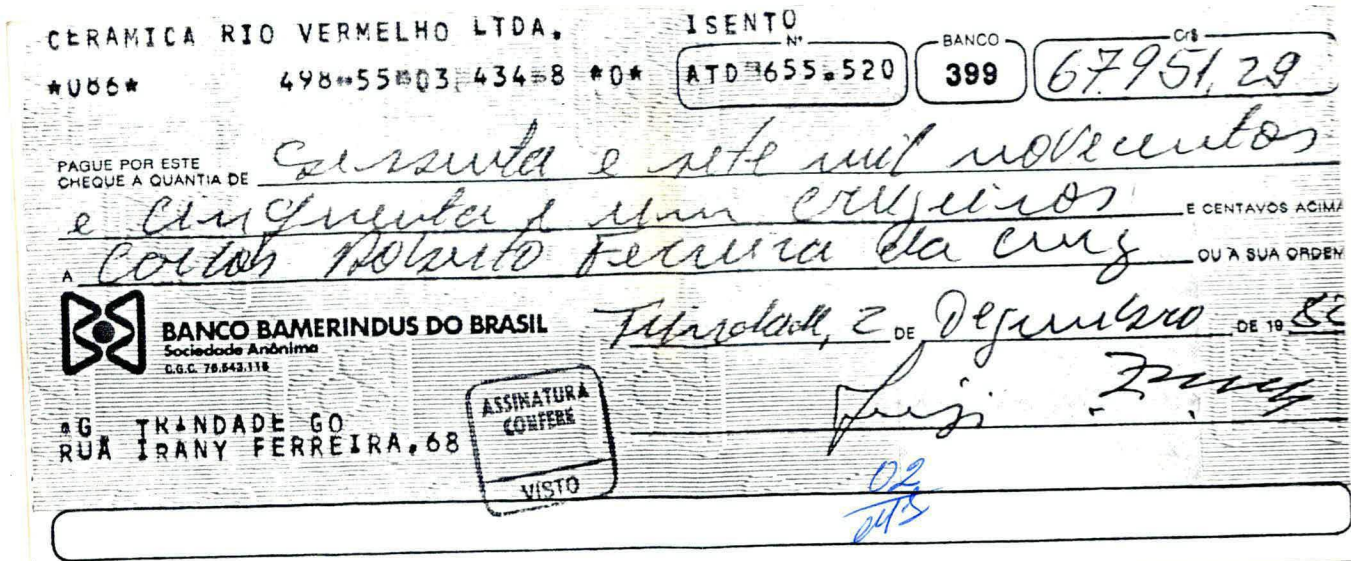 CERAMICA RIO VERMELHO LTDA. ISENTO
*086* 498 55 03 434 8 *0* Nº ATD 655.520 BANCO 399 Cr$ 67.951,29
PAGUE POR ESTE CHEQUE A QUANTIA DE sessenta e sete mil novecentos
e cinquenta e um cruzeiros E CENTAVOS ACIMA
A Carlos Roberto Ferreira da Cruz OU À SUA ORDEM
BANCO BAMERINDUS DO BRASIL
Sociedade Anônima
C.G.C. 76.543.115
Trindade, 2 DE Dezembro DE 19 82
AG TRINDADE GO
RUA IRANY FERREIRA,68
ASSINATURA
CONFERE
VISTO
02